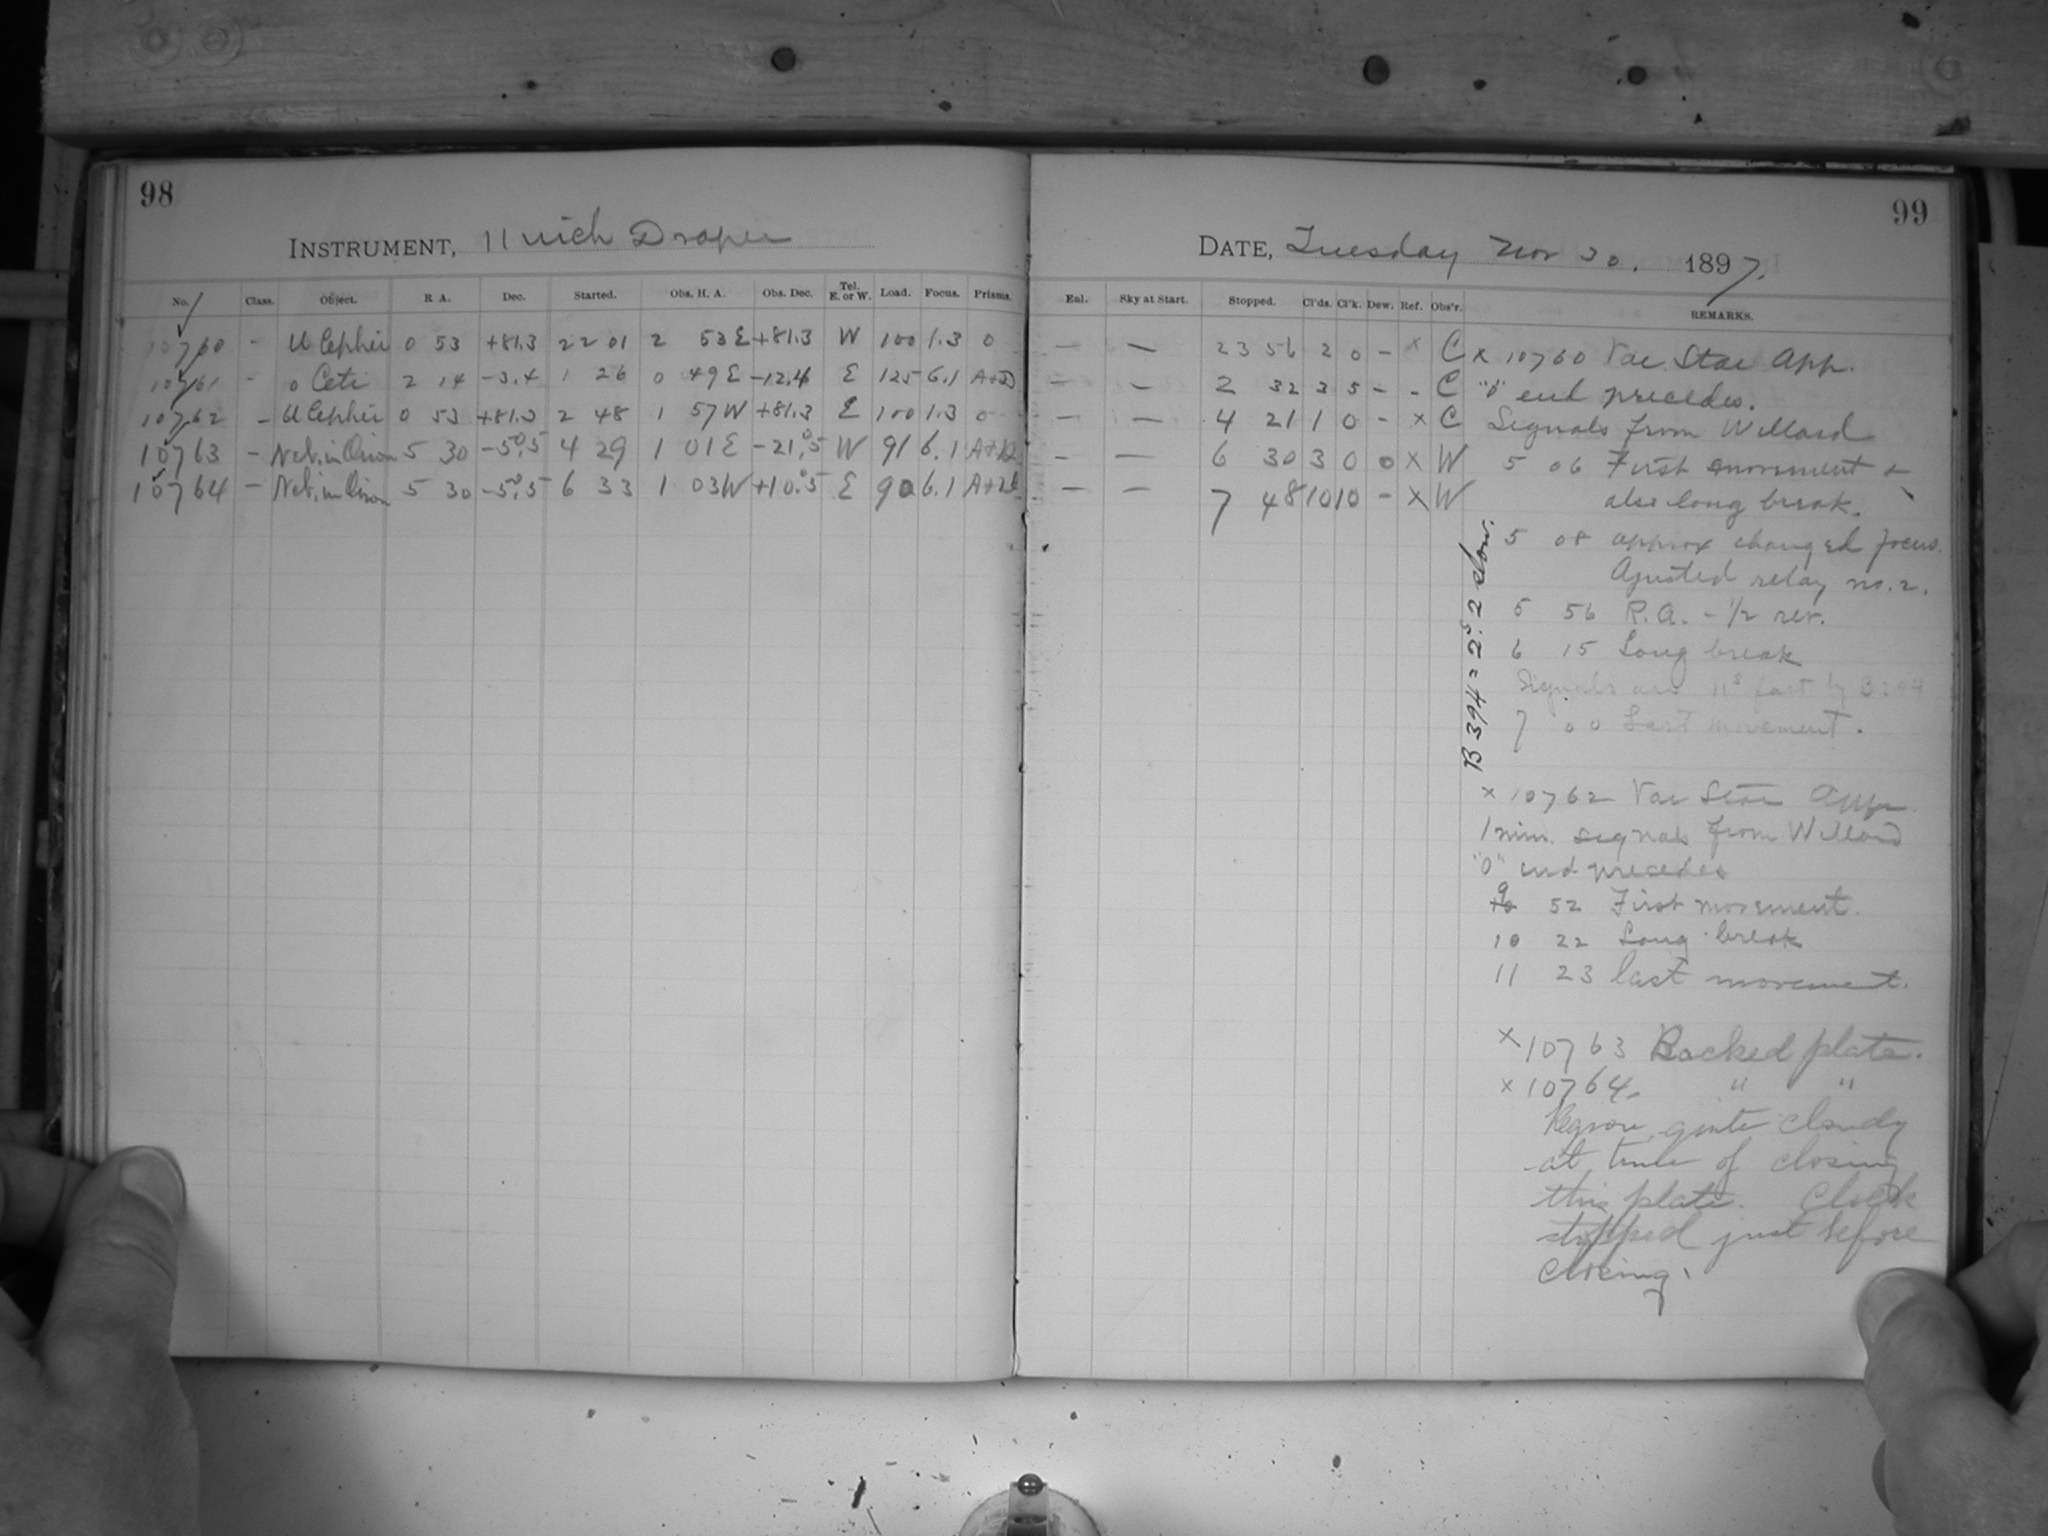 98
INSTRUMENT, 11 inch Draper
No. Class. Object. R. A. Dec. Started. Obs. H. A. Obs. Dec. Tel. E. or W. Load. Focus. Prisms.
10760 - U Cephei 0 53 +81.3 22 01 2 53 E +81.3 W 100 1.3 0
10761 - o Ceti 2 14 -3.4 1 26 0 49 E -12.4 E 125 6.1
10762 - U Cephei 0 53 +81.3 2 48 1 57 W +81.3 E 100 1.3 0
10763 - Neb. in Orion 5 30 -5°.5 4 29 1 01 E -21°.5 W 91 6.1
10764 - Neb. in Orion 5 30 -5°.5 6 33 1 03 W +10°.5 E 90 6.1
99
DATE, Tuesday Nov 30. 1897.
Enl. Sky at Start. Stopped. Cl'ds. Cl'k. Dew. Ref. Obs'r. REMARKS.
— — 23 56 2 0 - x C
— — 2 32 3 5 - - C
— — 4 21 1 0 - x C
— — 6 30 3 0 0 x W
— — 7 48 10 10 - x W
x 10760 Var. Star App.
"0" end precedes.
Signals from Willard
5 06 First movement &
also long break.
5 08 approx changed focus.
Ajusted relay no. 2.
5 56 R.A. - 1/2 rev.
6 15 Long break
Signals are 11s fast by B:94
7 00 Last movement.
x 10762 Var Star App.
1 min. signals from Willard
"0" end precedes
9 10 52 First movement.
10 22 Long break
11 23 last movement.
x 10763 Backed plate.
x 10764. " "
Region quite cloudy
at time of closing
this plate. Clock
stopped just before
closing.